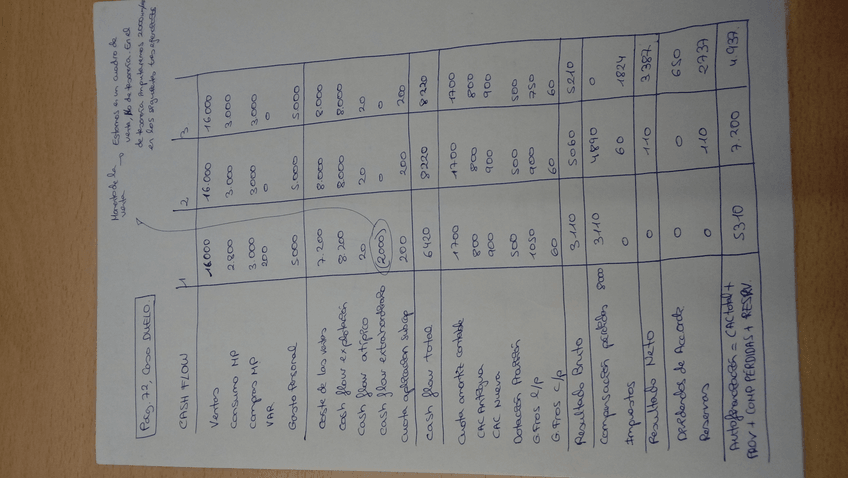 Pag. 72, Caso DUELO
Momento de la venta → Estamos en un cuadro de
venta, no de tesorería. En el
de tesorería imputaremos 2000
en los siguientes tres
CASH FLOW 1 2 3
Ventas 16000 16000 16000
Consumo MP 2800 3.000 3.000
Compras MP 3.000 3000 3.000
VAR 200 0 0
Gasto Personal 5000 5.000 5.000
Coste de las ventas 7.200 8.000 8.000
Cash flow explotación 8.200 8.000 8.000
Cash flow atípico 20 20 20
Cash flow extraordinario (2000) 0 0
Cuota aplicación subcap 200 200 200
Cash flow total 6420 8220 8220
Cuota amortiz contable 1700 1700 1700
CAC Antigua 800 800 800
CAC Nueva 900 900 900
Dotación 500 500 500
G.Fros l/p 1050 900 750
G Fros c/p 60 60 60
Resultado Bruto 3110 5060 5210
Compensación pérdidas 8000 3110 4890 0
Impuestos 0 60 1824
Resultado Neto 0 110 3387
Dividendos de Acorde 0 0 650
Reservas 0 110 2737
Autofinanciación = CAC total + 5310 7.200 4.937
PROV + COMP PERDIDAS + RESERV.